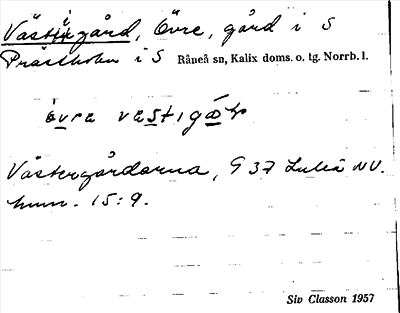 Västigård, Övre, gård i S
Prästholm i S Råneå sn, Kalix doms. o. tg. Norrb. l.
övra västigå
Västergårdarna, G 37 Luleå NV.
hmn. 15:9.
Siv Classon 1957